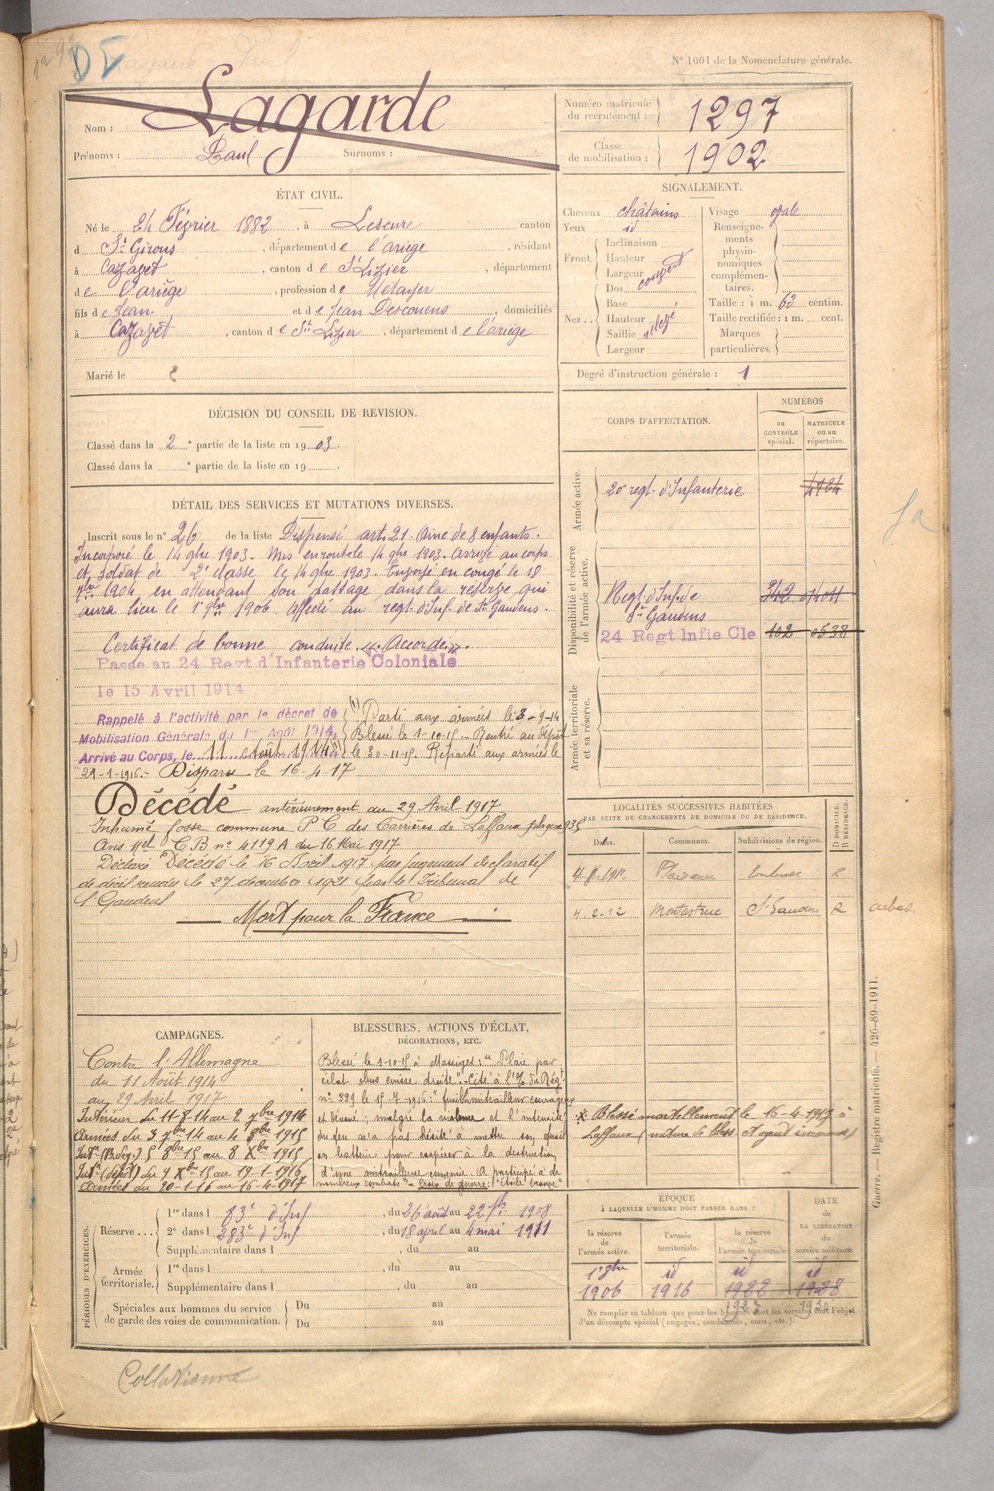 N° 1001 de la Nomenclature générale.
Nom : Lagarde
Prénoms : Paul Surnoms :
Numéro matricule du recrutement : 1297
Classe de mobilisation : 1902
ÉTAT CIVIL.
Né le 24 Février 1882, à Lescure canton
d St Girons, département de l'ariège, résidant
à Cazazet, canton de St Lizier, département
de l'ariège, profession de Métayer
fils de Jean et de Jean Descouens, domiciliés
à Cazazet, canton de St Lizier, département de l'ariège
Marié le
SIGNALEMENT.
Cheveux châtains
Yeux id
Front. Inclinaison
Hauteur
Largeur
Dos
Nez. Base
Hauteur
Saillie
Largeur
Visage ovale
Renseignements physionomiques complémentaires.
Taille : 1 m. 63 centim.
Taille rectifiée : 1 m. cent.
Marques particulières.
Degré d'instruction générale : 1
DÉCISION DU CONSEIL DE REVISION.
Classé dans la 2e partie de la liste en 1903.
Classé dans la e partie de la liste en 19 .
CORPS D'AFFECTATION.
NUMÉROS
au CONTRÔLE spécial.
MATRICULE ou au répertoire.
Armée active.
20e regt. d'Infanterie
Disponibilité et réserve de l'armée active.
Regt. d'Inf. de St Gaudens
24 Regt Infie Cle 102 0538
Armée territoriale et sa réserve.
DÉTAIL DES SERVICES ET MUTATIONS DIVERSES.
Inscrit sous le n° 26 de la liste Dispensé art. 21. Ainé de 8 enfants.
Incorporé le 14 9bre 1903. Mis en route le 14 9bre 1903. Arrivé au corps
et soldat de 2e classe le 14 9bre 1903. Envoyé en congé le 18
7bre 1904, en attendant son passage dans la réserve qui
aura lieu le 1er 9bre 1906. Affecté au regt. d'Inf. de St. Gaudens.
Certificat de bonne conduite "Accordé".
Passé au 24 Regt d'Infanterie Coloniale
le 15 Avril 1914
Rappelé à l'activité par le décret de
Mobilisation Générale du 1er Août 1914,
Arrivé au Corps, le 11 août 1914
(1) Parti aux armées le 3-9-14
Blessé le 1-10-15. Rentré au Dépôt
le 30-11-15. Reparti aux armées le
21-1-1916. Disparu le 16-4-17
Décédé antérieurement au 29 Avril 1917
Inhumé fosse commune P C des Carrières de Laffaux plaque 935
Avis Mel C.B n° 4119 A du 16 Mai 1917
Déclaré Décédé le 16 Avril 1917 par jugement déclaratif
de décès rendu le 27 décembre 1921 par le Tribunal de
St Gaudens
Mort pour la France
LOCALITÉS SUCCESSIVES HABITÉES
PAR SUITE DE CHANGEMENTS DE DOMICILE OU DE RÉSIDENCE.
Dates. Communes. Subdivisions de région. D DOMICILE. R RÉSIDENCE.
Plaisance Toulouse R
4.2.12 Montastruc St Gaudens R
CAMPAGNES.
Contre l'Allemagne
du 11 Août 1914
au 29 Avril 1917
Intérieur du 11 8 14 au 2 7bre 1914
Armées du 3 7bre 14 au 4 8bre 1915
Intr (Bdeg.) 5 8bre 15 au 8 Xbre 1915
Intr (dépôt) du 9 Xbre 15 au 19-1-1916
Armées du 20-1-16 au 16-4-1917
BLESSURES, ACTIONS D'ÉCLAT,
DÉCORATIONS, ETC.
Blessé le 1-10-15 à Massiges : "Plaie par
éclat obus cuisse droite". Cité à l'O/ du Régt
n° 229 le 15-7-1916 : "fusilier mitrailleur courageux
et dévoué : malgré la violence et l'intensité
du feu n'a pas hésité à mettre son fusil
en batterie pour coopérer à la destruction
d'une mitrailleuse ennemie. A participé à de
nombreux combats" Croix de guerre : "Etoile bronze"
x Blessé mortellement le 16-4-1917 à
Laffaux (nature de bless. et agent inconnus)
PÉRIODES D'EXERCICES.
Réserve... 1re dans l 83e d'Inf, du 26 août au 22 7bre 1908
2e dans l 283e d'Inf, du 18 avril au 4 mai 1911
Supplémentaire dans l , du au
Armée territoriale. 1re dans l , du au
Supplémentaire dans l , du au
Spéciales aux hommes du service de garde des voies de communication. Du au
Du au
ÉPOQUE
À LAQUELLE L'HOMME DOIT PASSER DANS :
la réserve de l'armée active.
l'armée territoriale.
la réserve de l'armée territoriale.
DATE DE LA LIBÉRATION du service militaire.
1er 9bre 1906 id 1916 id 1922 id 1928
Ne remplir ce tableau que pour les hommes dont les services font l'objet
d'un décompte spécial (engagés, condamnés, omis, etc.).
Guerre. — Registre matricule. — 426-89-1911.
Collationné